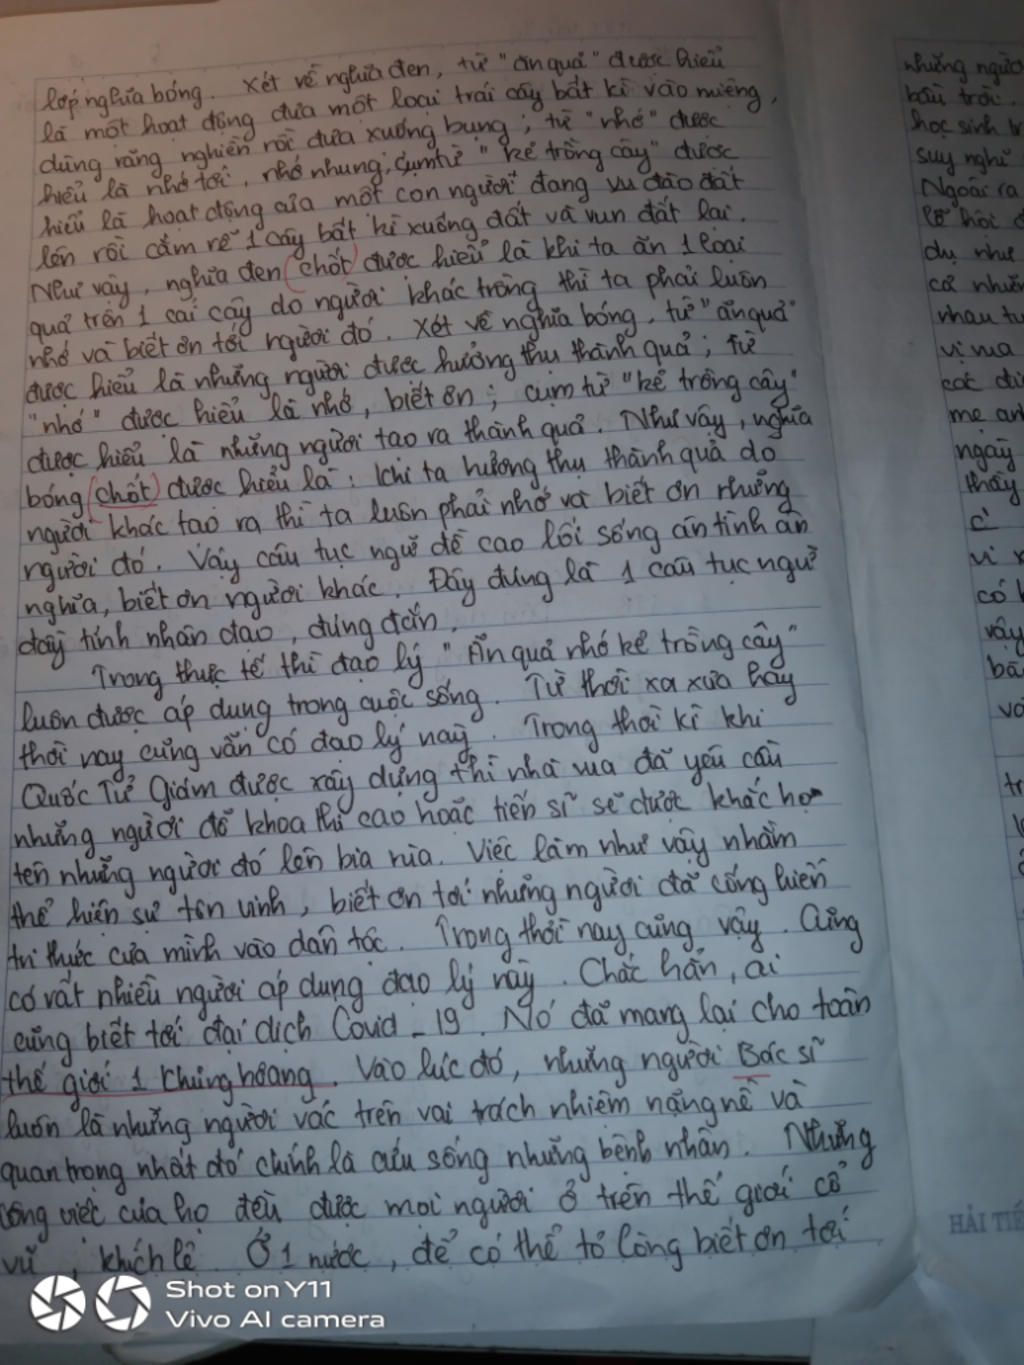 lớp nghĩa bóng. Xét về nghĩa đen, từ "ăn quả" được hiểu
là một hoạt động đưa một loại trái cây bất kì vào miệng,
dùng răng nghiền rồi đưa xuống bụng; từ "nhớ" được
hiểu là nhớ tới, nhớ nhung; cụm từ "kẻ trồng cây" được
hiểu là hoạt động của một con người đang vu đào đất
lên rồi cắm rễ 1 cây bất kì xuống đất và vun đất lại.
Như vậy, nghĩa đen (chốt) được hiểu là khi ta ăn 1 loại
quả trên 1 cái cây do người khác trồng thì ta phải luôn
nhớ và biết ơn tới người đó. Xét về nghĩa bóng, từ "ăn quả"
được hiểu là những người được hưởng thụ thành quả; từ
"nhớ" được hiểu là nhớ, biết ơn; cụm từ "kẻ trồng cây"
được hiểu là những người tạo ra thành quả. Như vậy, nghĩa
bóng (chốt) được hiểu là: khi ta hưởng thụ thành quả do
người khác tạo ra thì ta luôn phải nhớ và biết ơn những
người đó. Vậy câu tục ngữ đề cao lối sống ân tình ân
nghĩa, biết ơn người khác. Đây đúng là 1 câu tục ngữ
đầy tính nhân đạo, đúng đắn.
Trong thực tế thì đạo lý "Ăn quả nhớ kẻ trồng cây"
luôn được áp dụng trong cuộc sống. Từ thời xa xưa hay
thời nay cũng vẫn có đạo lý này. Trong thời kì khi
Quốc Tử Giám được xây dựng thì nhà vua đã yêu cầu
những người đỗ khoa thi cao hoặc tiến sĩ sẽ được khắc họ
tên những người đó lên bia rùa. Việc làm như vậy nhằm
thể hiện sự tôn vinh, biết ơn tới những người đã cống hiến
tri thức của mình vào dân tộc. Trong thời nay cũng vậy. Cũng
có vất nhiều người áp dụng đạo lý này. Chắc hẳn, ai
cũng biết tới đại dịch Covid_19. Nó đã mang lại cho toàn
thế giới 1 khủng hoảng. Vào lúc đó, những người Bác sĩ
luôn là những người vác trên vai trách nhiệm nặng nề và
quan trọng nhất đó chính là cứu sống những bệnh nhân. Những
công việc của họ đều được mọi người ở trên thế giới cổ
vũ, khích lệ. Ở 1 nước, để có thể tỏ lòng biết ơn tới
những người
bầu trời.
học sinh tr
suy nghĩ
Ngoài ra
lễ hội
dụ như
cả nhữn
nhau tu
vị vua
các
mẹ anh
ngày
thầy
vì
có
vậy
HẢI TIẾ
Shot on Y11
Vivo AI camera